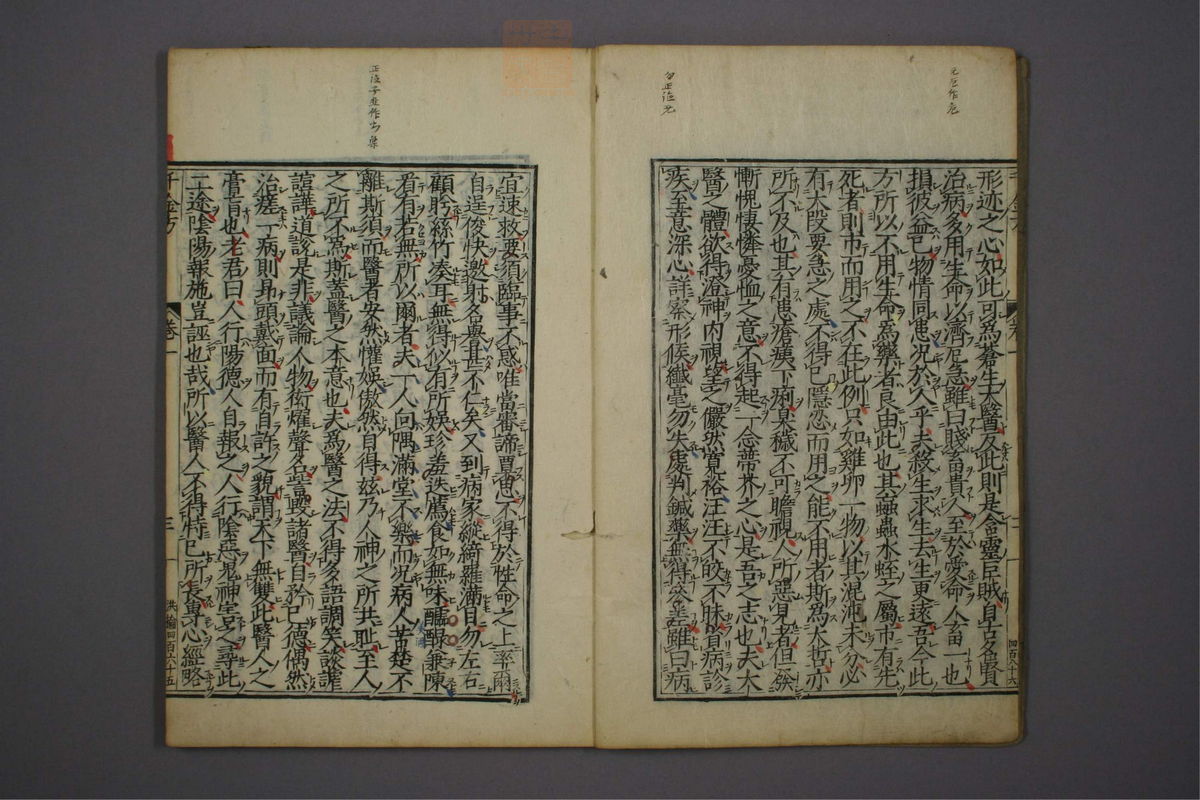 形迹之心如此可爲蒼生大醫反此則是含靈巨賊自古名賢
治病多用生命以濟危急雖曰賤畜貴人至於愛命人畜一也
損彼益己物情同患况於人乎夫殺生求生去生更遠吾今此
方所以不用生命爲藥者良由此也其蝱蟲水蛭之屬市有先
死者則市而用之不在此例只如雞卵一物以其混沌未分必
有大段要急之處不得已隱忍而用之能不用者斯爲大哲亦
所不及也其有患瘡痍下痢臭穢不可瞻視人所惡見者但發
慚愧悽憐憂恤之意不得起一念蔕芥之心是吾之志也夫大
醫之體欲得澄神内視望之儼然寛裕汪汪不皎不昧省病診
疾至意深心詳察形候纎毫勿失處判鍼藥無得參差雖曰病
宜速救要須臨事不惑唯當審諦覃思不得於性命之上率爾
自逞俊快邀射名譽甚不仁矣又到病家縱綺羅滿目勿左右
顧眄絲竹凑耳無得似有所娯珍羞迭薦食如無味醽醁兼陳
看有若無所以爾者夫一人向隅滿堂不樂而况病人苦楚不
離斯須而醫者安然懽娯傲然自得兹乃人神之所共耻至人
之所不爲斯蓋醫之本意也夫爲醫之法不得多語調笑談謔
諠譁道說是非議論人物衒燿聲名訾毀諸醫自矜己德偶然
治瘥一病則昂頭戴面而有自許之貌謂天下無雙此醫人之
膏肓也老君曰人行陽德人自報之人行陰德鬼神害之尋此
二途陰陽報施豈誣也哉所以醫人不得恃己所長專心經略
千金方
卷一
三
四百六十五
四百八十六